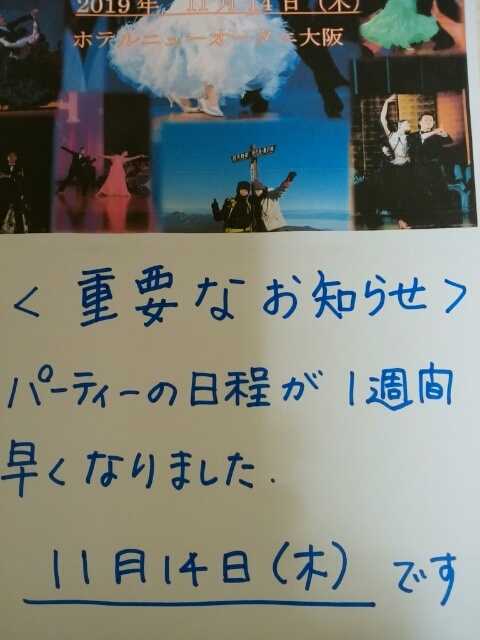 2019年 11月14日(木)
ホテルニューオータニ大阪
<重要なお知らせ>
パーティーの日程が1週間
早くなりました.
11月14日(木)です